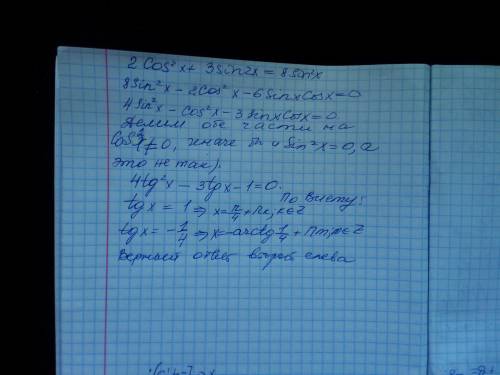 2 Cos² x + 3 sin2x = 8 sin² x
8 Sin² x - 2 Cos² x - 6 Sinx Cosx = 0
4 Sin² x - Cos² x - 3 sinx Cosx = 0
Делим обе части на
Cos² x ≠ 0, иначе и Sin² x = 0, а
это не так).
4 tg² x - 3 tg x - 1 = 0.
По Виету:
tg x = 1 ⇒ x = π/4 + πk, k∈Z
tg x = -1/4 ⇒ x = -arctg 1/4 + πm, m∈Z
Верный ответ второй слева